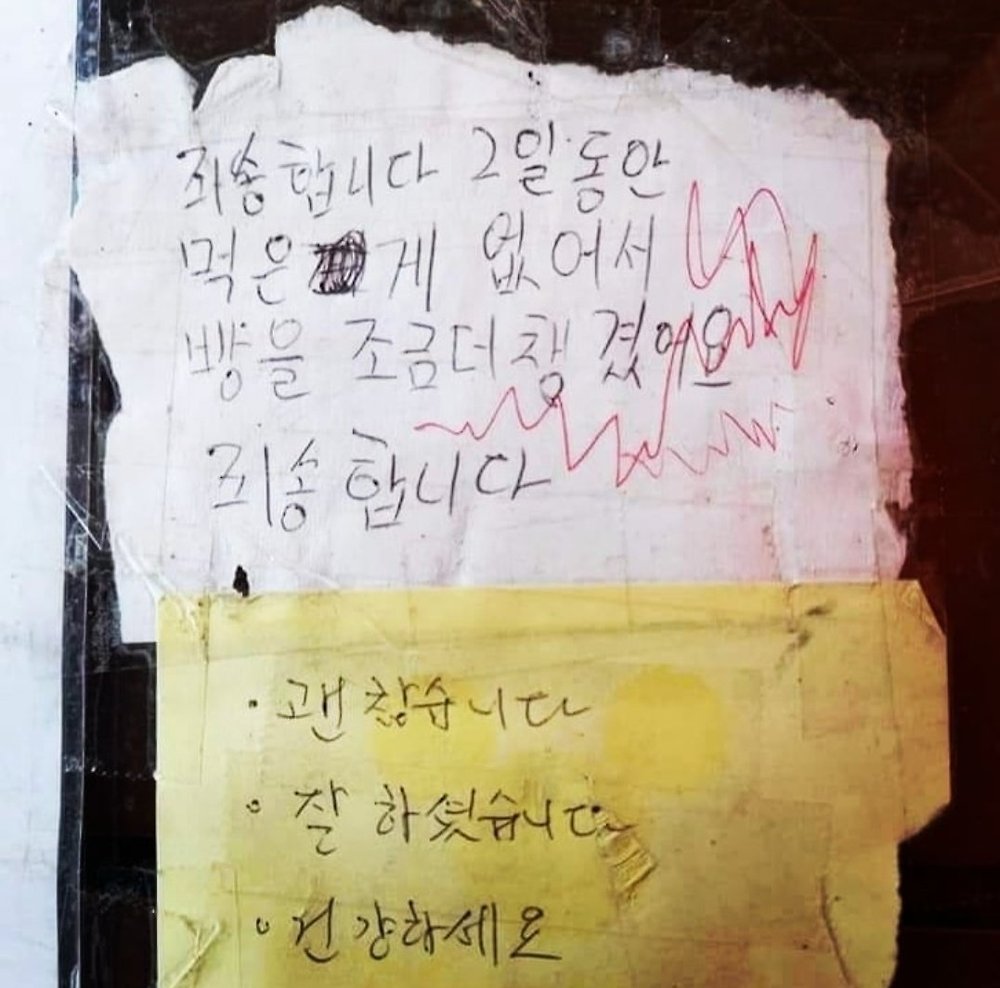 죄송합니다 2일동안
먹은 게 없어서
빵을 조금더 챙겼어요
죄송합니다
· 괜찮습니다
· 잘 하셨습니다
· 건강하세요